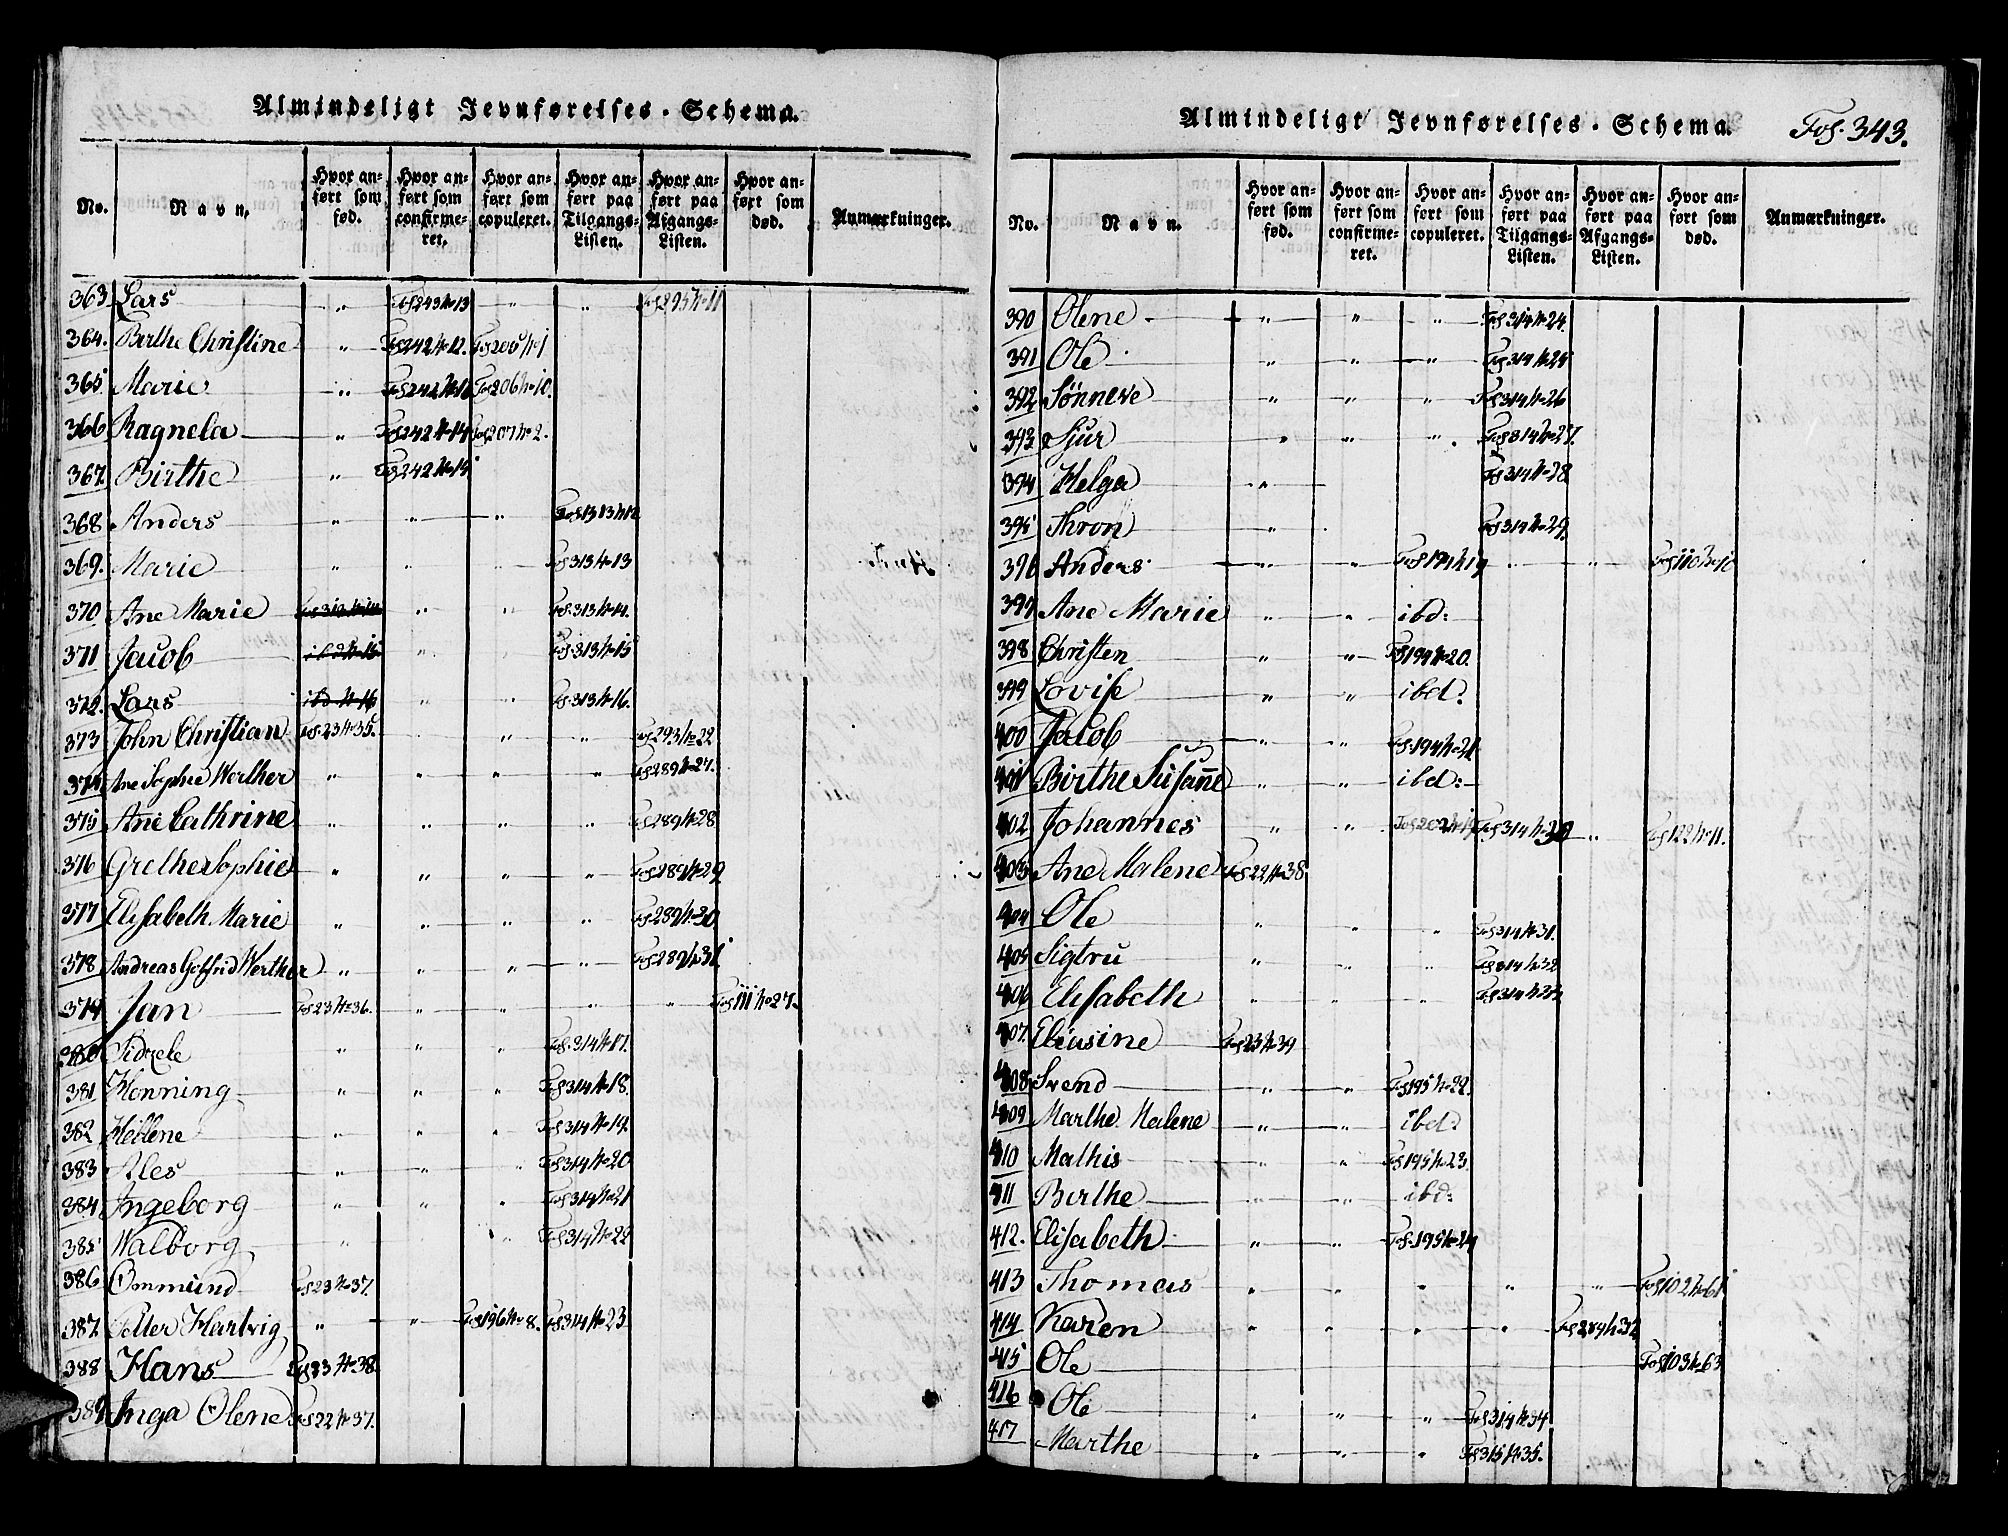 Almindeligt Jevnførelses-Schema.
No. Navn. Hvor anført som fød. Hvor anført som confirmeret. Hvor anført som copuleret. Hvor anført paa Tilgangs-Listen. Hvor anført paa Afgangs-Listen. Hvor anført som død. Anmærkninger.
363 Lars " Fol 243 No 13 " " Fol 295 No 11
364. Birthe Christine " Fol 242 No 12. Fol 205 No 1
365 Marie " Fol 242 No 16 Fol 206 No 10.
366 Ragnela " Fol 242 No 14 Fol 207 No 2.
367. Birthe " Fol 242 No 15
368 Anders " " " Fol 313 No 12
369. Marie " " " Fol 313 No 13
370 Ane Marie " " Fol. 313 No 14.
371 Jacob ibd No 15 " " Fol. 313 No 15
372. Lars ibd No 16 " " Fol. 313 No 16.
373 John Christian Fol. 23 No 35. " " " Fol 293 No 22
374 Ane Sophie Werther " " " " Fol 289 No 27.
375 Ane Cathrine " " " " Fol 289 No 28
376 Grethe Sophie " " " " Fol 289 No 29
377 Elisabeth Marie " " " " Fol 289 No 30
378 Andreas Gotfrid Werther " " " " Fol 289 No 31
379 Jan Fol 23 No 36. " " " " Fol 111 No 27.
380 Sidzele " " " Fol. 314 No 17.
381 Henning " " " Fol 314 No 18.
382 Hellene " " " Fol 314 No 19.
383 Ales " " " Fol 314 No 20
384 Ingeborg " " " Fol 314 No 21
385 Walborg " " Fol 314 No 22
386 Ommund Fol 23 No 37.
387. Petter Hartvig " " Fol 196 No 8. Fol 314 No 23
388 Hans Fol 23 No 38
389 Inga Olene Fol 22 No 37.
Almindeligt Jevnførelses-Schema. Fol. 343.
No. Navn. Hvor anført som fød. Hvor anført som confirmeret. Hvor anført som copuleret. Hvor anført paa Tilgangs-Listen. Hvor anført paa Afgangs-Listen. Hvor anført som død. Anmærkninger.
390 Olene " " " Fol 314 No 24.
391 Ole " " " Fol 314 No 25
392 Sønneve " " " Fol 314 No 26
393 Sjur " " " Fol 314 No 27.
394 Helga " Fol 314 No 28
395 Thron " " Fol 314 No 29.
396 Anders " " Fol 194 No 19 " " Fol 110 No 16
397 Ane Marie " " ibd:
398 Christen " " Fol 194 No 20.
399 Lovise " " ibd:
400 Jacob " " Fol 194 No 21
401 Birthe Susane " " ibd:
402 Johannes " " Fol 314 No 30 " Fol 122 No 11.
403 Ane Malene Fol 22 No 38.
404 Ole " " " Fol 314 No 31.
405 Sigtru " " " Fol 314 No 32
406 Elisabeth " " " Fol 314 No 33
407. Eliasine Fol 23 No 39
408 Svend " " Fol 195 No 22.
409 Marthe Malene " " ibd:
410 Mathis " " Fol 195 No 23.
411 Birthe " " ibd:
412. Elisabeth " " Fol. 195 No 24
413 Thomas " " " " " Fol 102 No 61
414 Karen " " " " Fol 289 No 32
415 Ole Fol 103 No 63
416 Ole " " " Fol 314 No 34
417 Marthe " " " Fol 315 No 35.